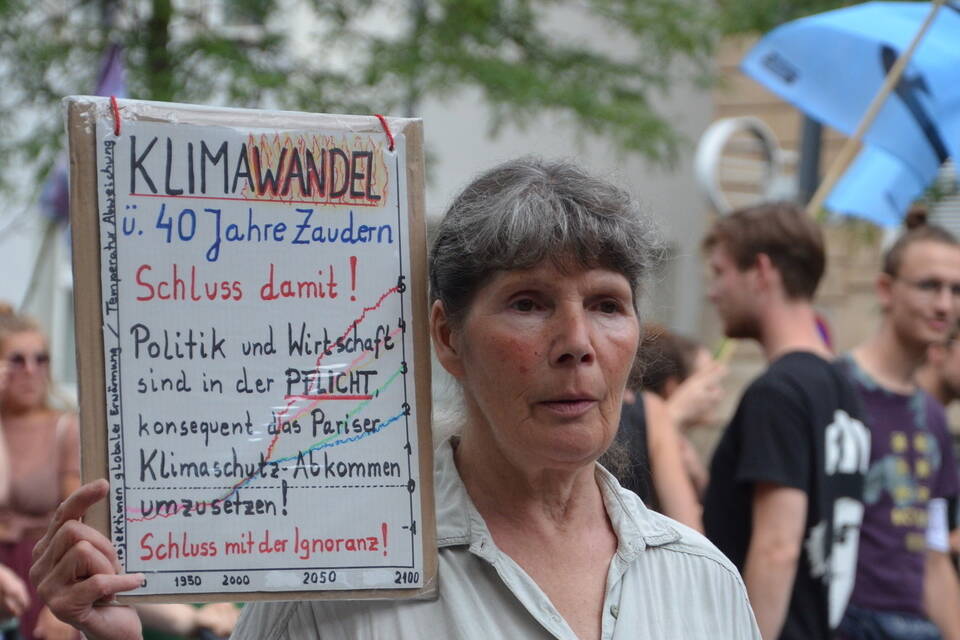 KLIMAWANDEL
ü. 40 Jahre Zaudern
Schluss damit!
Politik und Wirtschaft
sind in der PFLICHT,
konsequent das Pariser
Klimaschutz-Abkommen
umzusetzen!
Schluss mit der Ignoranz!
Projektionen globaler Erwärmung / Temperatur Abweichung
5
4
3
2
1
0
-1
1950 2000 2050 2100